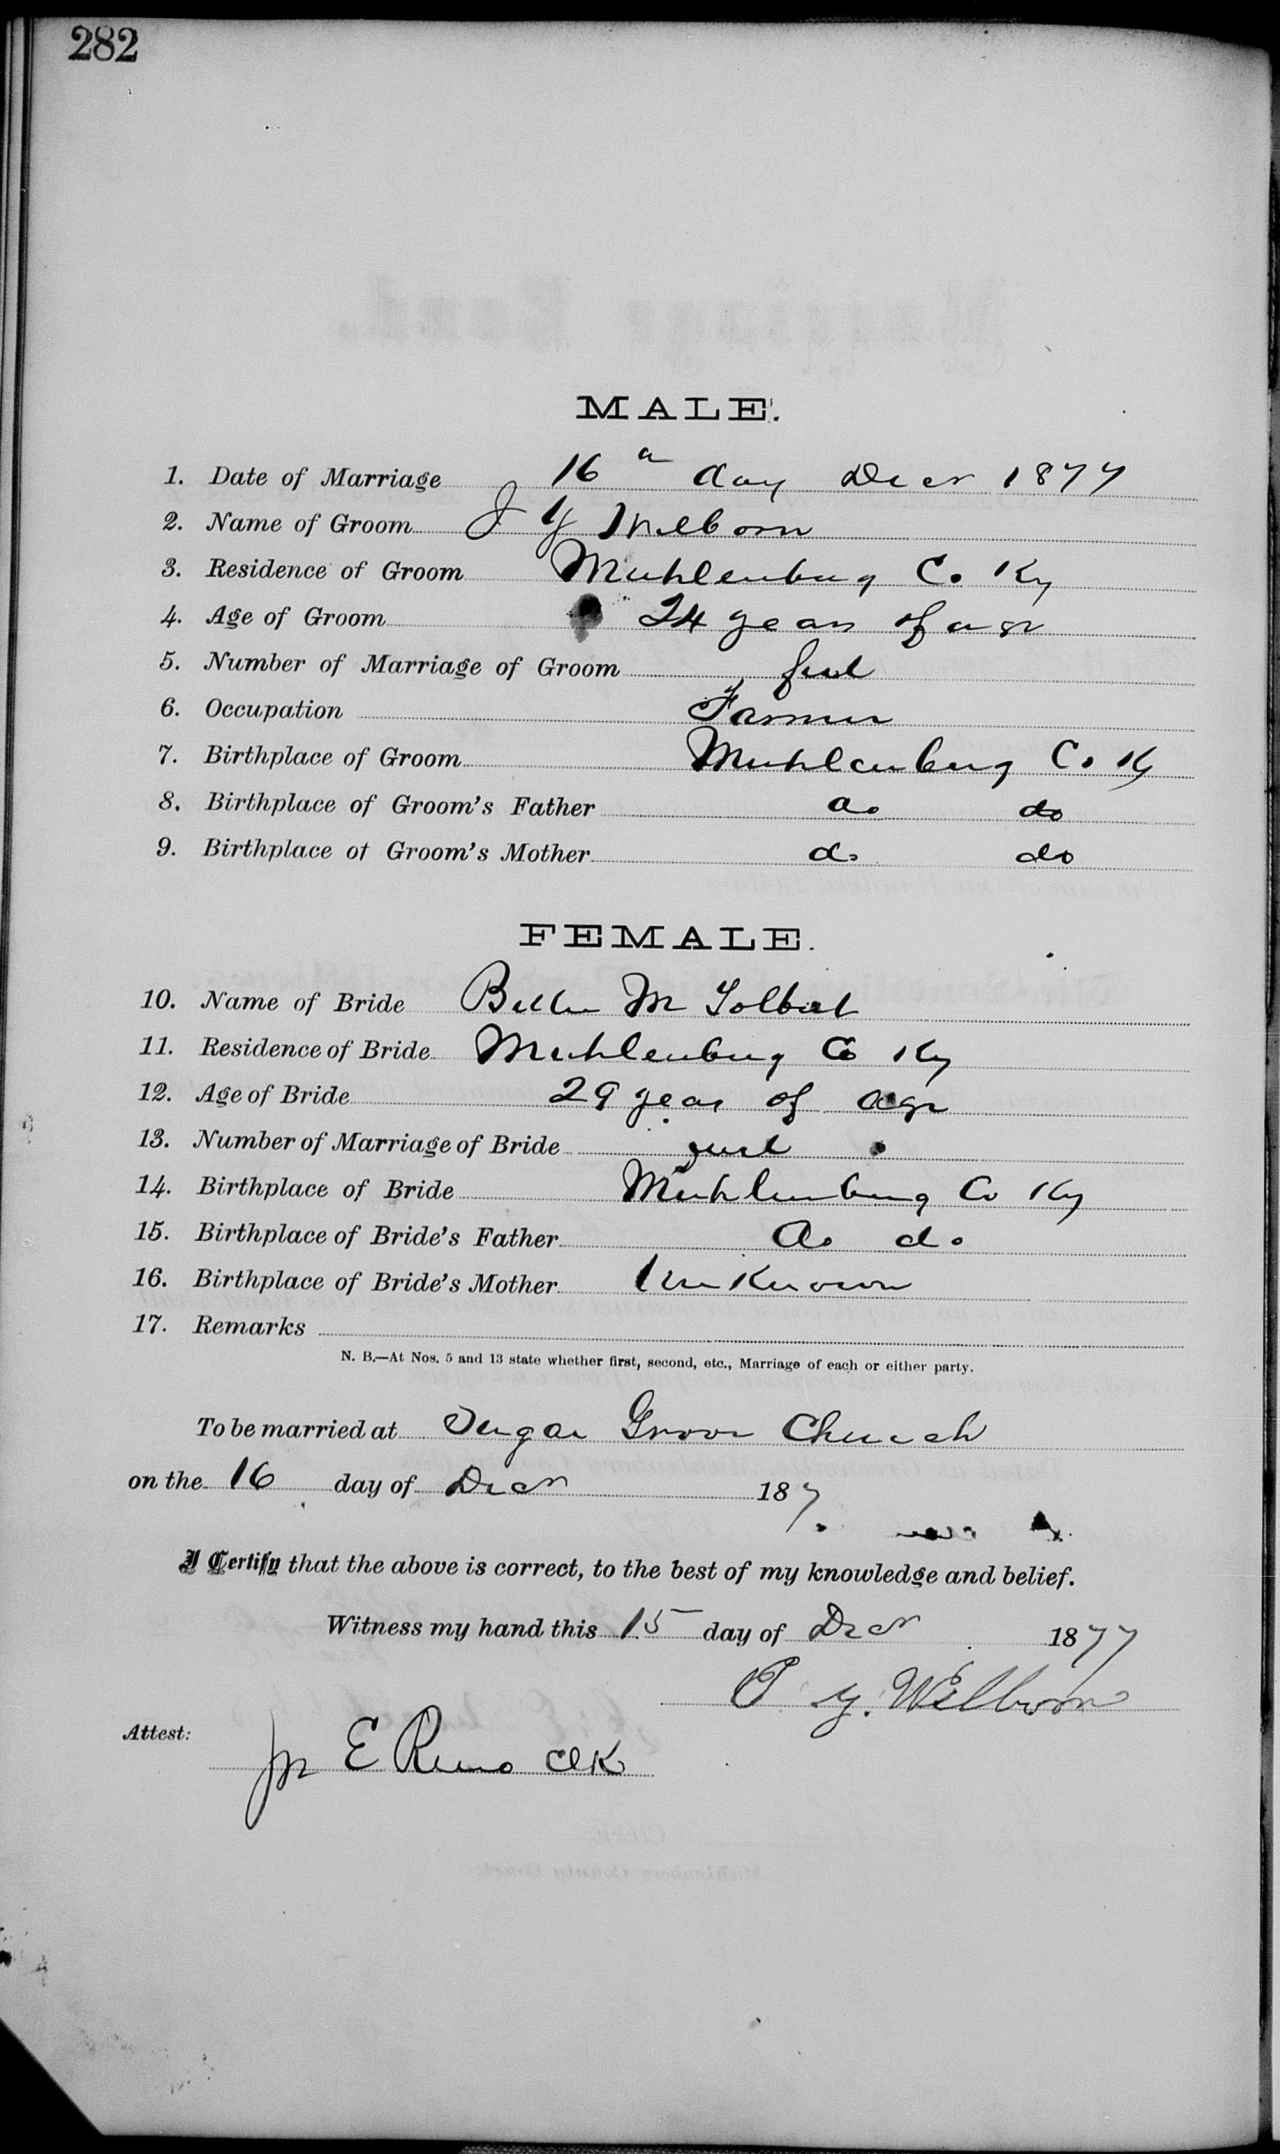 282
MALE.
1. Date of Marriage 16 day Decr 1877
2. Name of Groom J Y Welborn
3. Residence of Groom Muhlenburg C. Ky
4. Age of Groom 24 years of age
5. Number of Marriage of Groom first
6. Occupation Farmer
7. Birthplace of Groom Muhlenburg C. Ky
8. Birthplace of Groom's Father do do
9. Birthplace of Groom's Mother do do
FEMALE.
10. Name of Bride M Tolbert
11. Residence of Bride Muhlenburg Co Ky
12. Age of Bride 29 years of age
13. Number of Marriage of Bride first
14. Birthplace of Bride Muhlenburg Co Ky
15. Birthplace of Bride's Father do do
16. Birthplace of Bride's Mother Unknown
17. Remarks
N. B.—At Nos. 5 and 13 state whether first, second, etc., Marriage of each or either party.
To be married at Sugar Grove Church
on the 16 day of Decr 187
I Certify that the above is correct, to the best of my knowledge and belief.
Witness my hand this 15 day of Decr 1877
Y. Welborn
Attest:
Jn E Reno Clk